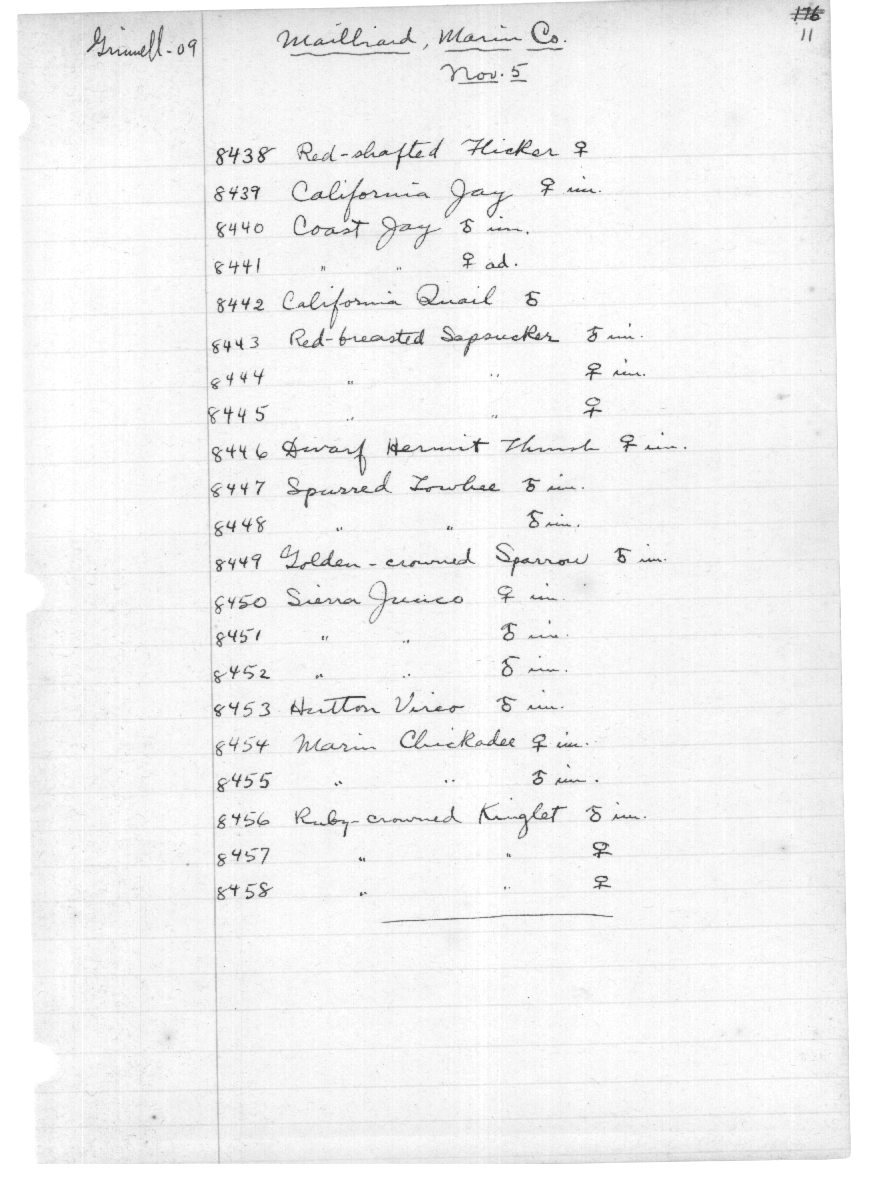 Grinnell-09
Mailliard, Marin Co.
176
11
Nov. 5
8438 Red-shafted Flicker ♀
8439 California Jay ♀ im.
8440 Coast Jay ♂ im.
8441 " " ♀ ad.
8442 California Quail ♂
8443 Red-breasted Sapsucker ♂ im.
8444 " " ♀ im.
8445 " " ♀
8446 Dwarf Hermit Thrush ♀ im.
8447 Spurred Towhee ♂ im.
8448 " " ♂ im.
8449 Golden-crowned Sparrow ♂ im.
8450 Sierra Junco ♀ im.
8451 " " ♂ im.
8452 " " ♂ im.
8453 Hutton Vireo ♂ im.
8454 Marin Chickadee ♀ im.
8455 " " ♂ im.
8456 Ruby-crowned Kinglet ♂ im.
8457 " " ♀
8458 " " ♀